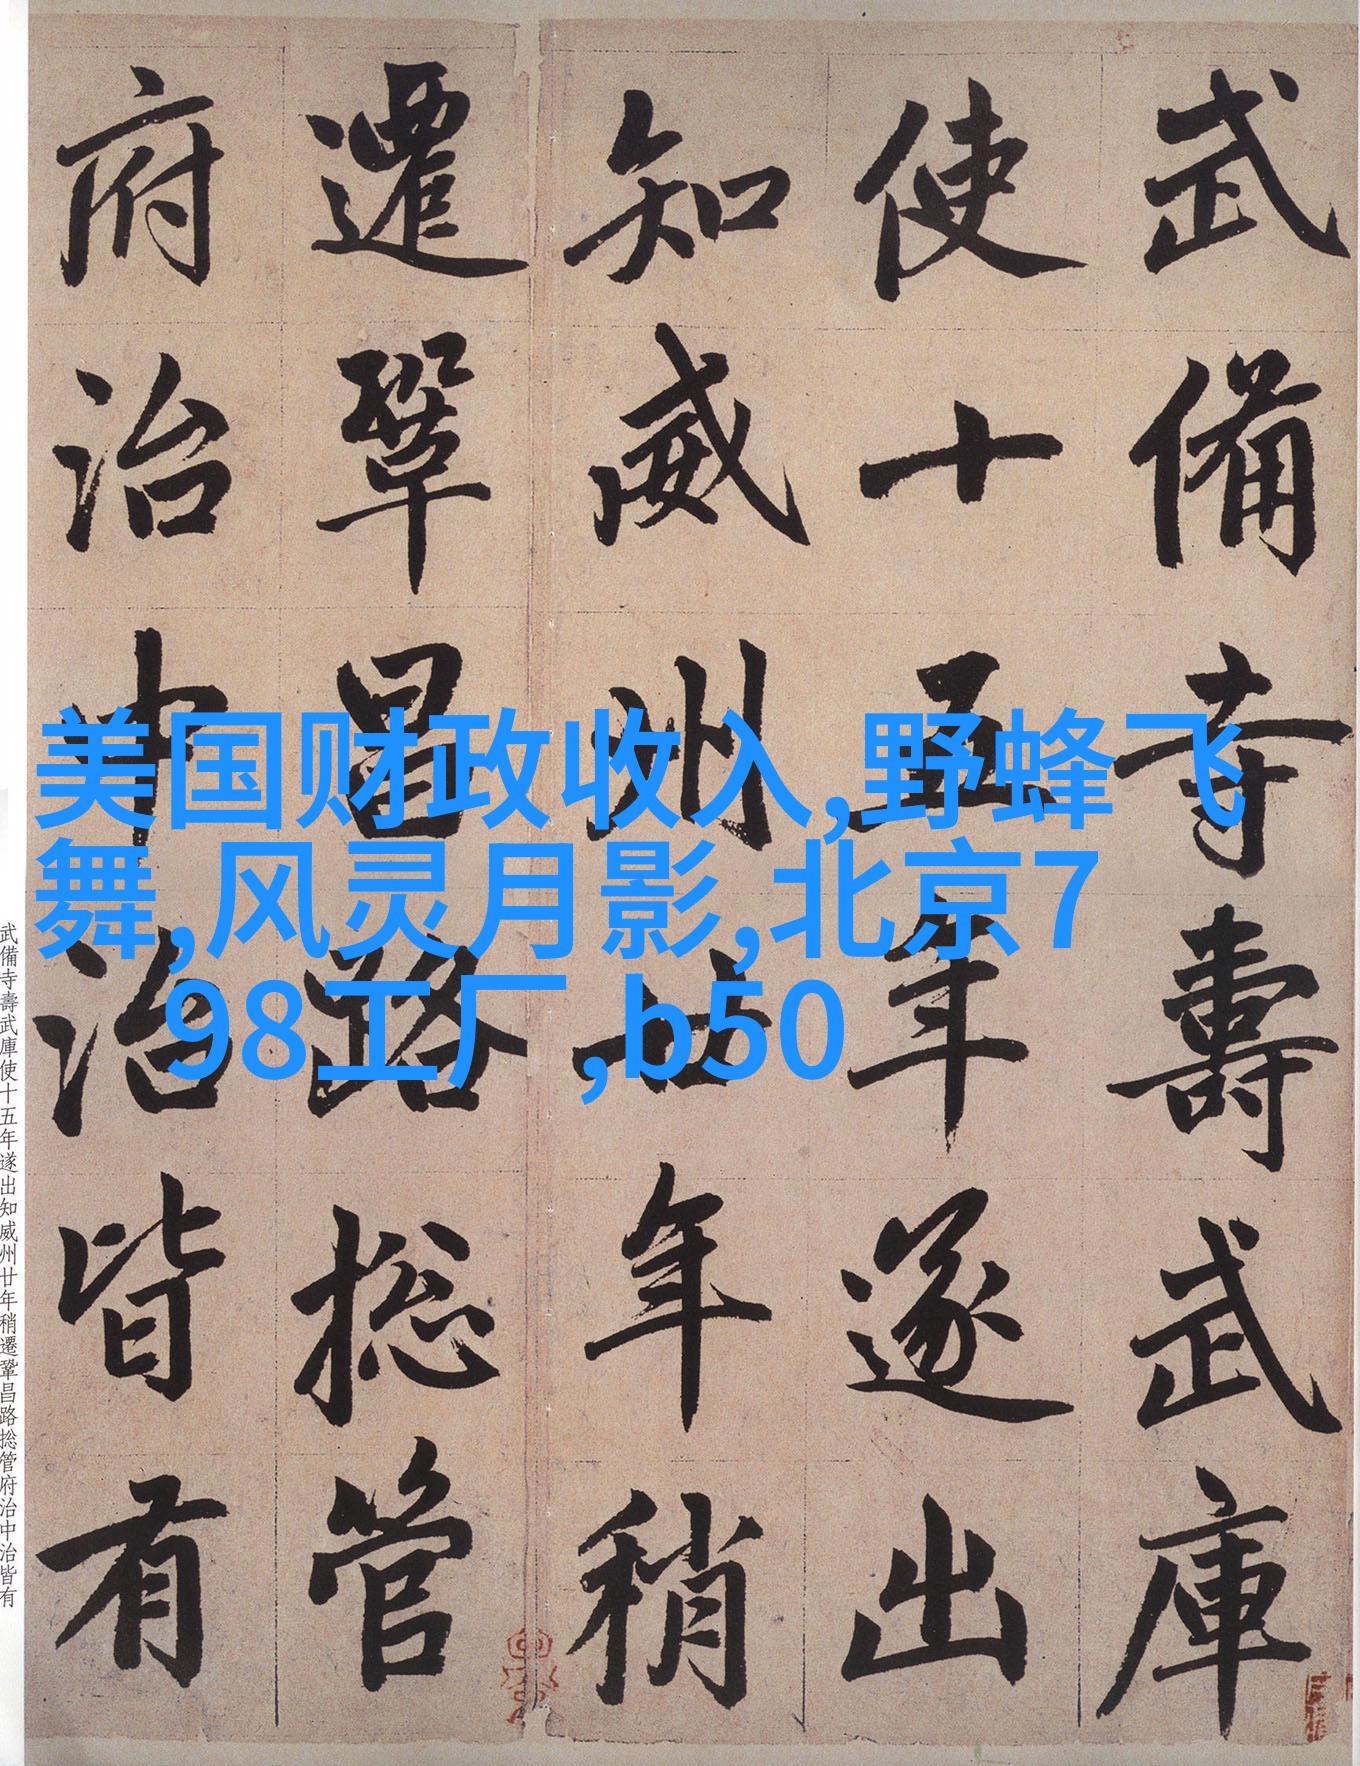 武備寺壽武庫
使十五年遂出
知威州廿年稍
遷鞏昌路捴管
府治中治皆有
美国财政收入,野蜂飞
舞,风灵月影,北京7
98工厂,b50
武備寺壽武庫使十五年遂出知威州廿年稍遷鞏昌路捴管府治中治皆有